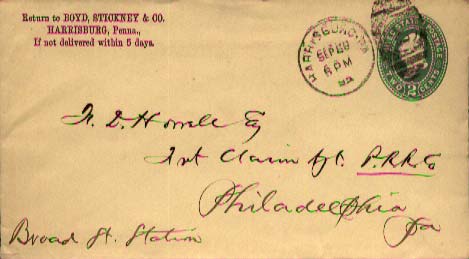 Return to BOYD, STICKNEY & CO.
HARRISBURG, Penna.,
If not delivered within 5 days.
HARRISBURG, PA
SEP 28
6 PM
TWO 2 CENTS
Esq
Frt Claim Agt. P.R.R. Co
Philadelphia
Pa
Broad St. Station